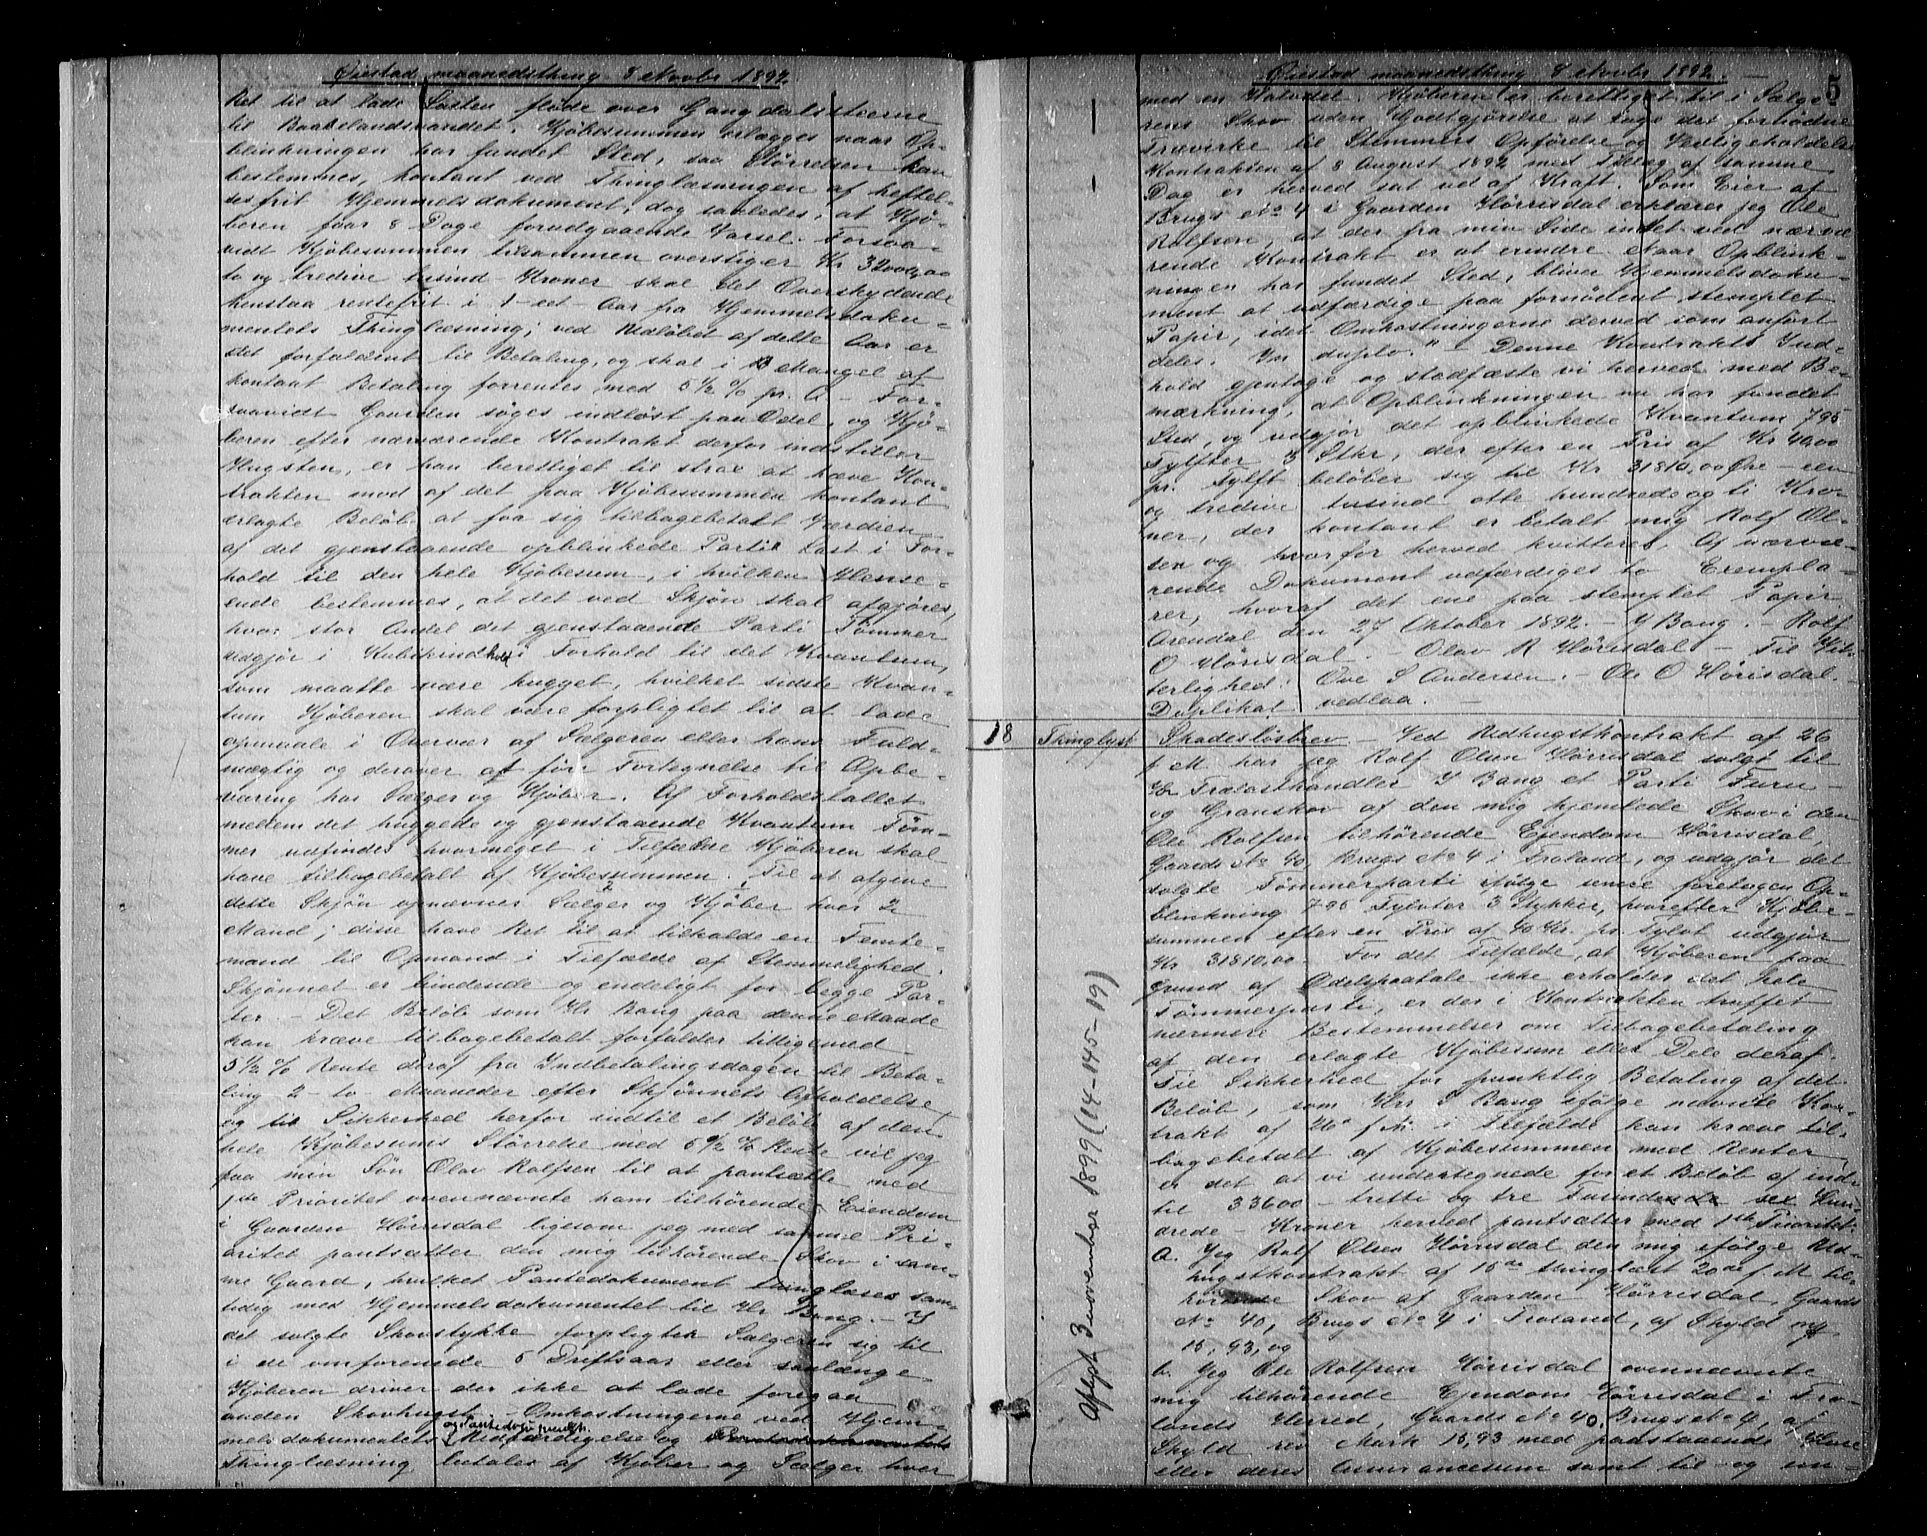 Øiestad maanedsthing 8 Novbr 1892.
Ret til at lade Lasten fløde over Gangdalstjerne
til Baaselandsvandet. Kjøbesummen erlægges naar Op-
blinkningen har fundet Sted, saa Størrelsen kan
bestemmes, kontant ved Thinglæsningen af heftel-
sesfrit Hjemmelsdokument, dog saaledes, at Kjø-
beren faar 8 Dage forudgaaende Varsel. Forsaa-
vidt Kjøbesummen tilsammen overstiger Kr 32000,00
to og tredive tusind Kroner skal det Overskydende
henstaa rentefrit i 1 - et - Aar fra Hjemmelsdoku-
mentets Thinglæsning; ved Udløbet af dette Aar er
det forfaldent til Betaling, og skal i Mangel af
kontant Betaling forrentes med 5 1/2 % pr. A - For-
saavidt Gaarden søges indløst paa Odel, og Kjø-
beren efter nærværende Kontrakt derfor indstiller
Hugsten, er han berettiget til strax at hæve Kon-
trakten mod af det paa Kjøbesummen kontant
erlagte Beløb at faa sig tilbagebetalt Værdien
af det gjenstaaende opblinkede Parti Last i For-
hold til den hele Kjøbesum, i hvilken Hense-
ende bestemmes, at det ved Skjøn skal afgjøres,
hvor stor Andel det gjenstaaende Parti Tømmer
udgjør i Kubikindhold i Forhold til det Kvantum,
som maatte være hugget, hvilket sidste Kvan-
tum Kjøberen skal være forpligtet til at lade
opmaale i Overvær af Sælgeren eller hans Fuld-
mægtig og derover at føre Fortegnelse til Opbe-
varing hos Sælger og Kjøber. Af Forholdstallet
mellem det huggede og gjenstaaende Kvantum Tøm-
mer udfindes hvormeget i Tilfælde Kjøberen skal
have tilbagebetalt af Kjøbesummen. Til at afgive
dette Skjøn opnævnes Sælger og Kjøber hver 2
Mand; disse have Ret til at tilkalde en Femte-
mand til Opmand i Tilfælde af Stemmelighed.
Skjønnet er bindende og endeligt for begge Par-
ter. - Det Beløb som Hr Bang paa denne Maade
kan kræve tilbagebetalt forfalder tilligemed
5 1/2 % Rente deraf fra Indbetalingsdagen til Beta-
ling 2 - to - Maaneder efter Skjønnets Afholdelse,
og til Sikkerhed herfor indtil et Beløb af den
hele Kjøbesums Størrelse med 5 1/2 % Rente vil jeg
faa min Søn Olav Rolfsen til at pantsætte med
1ste Prioritet ovennævnte ham tilhørende Eiendom
i Gaarden Hørrisdal ligesom jeg med samme Pri-
oritet pantsætter den mig tilhørende Skov i sam-
me Gaard, hvilket Pantedokument thinglæses sam-
tidig med Hjemmelsdokumentet til Hr Bang. - I
det solgte Skovstykke forpligter Sælgeren sig til
i de omforenede 5 Driftsaar eller saalænge
Kjøberen driver der ikke at lade foregaa
anden Skovhugst. Omkostningerne ved Hjem-
melsdokumentets og Pantedokumentets Udfærdigelse og
Thinglæsning betales af Kjøber og Sælger hver
Øiestad maanedsthing 8 Novbr 1892.
5
med en Halvdel. Kjøberen er berettiget til i Sælge-
rens Skov uden Godtgjørelse at tage det fornødne
Trævirke til Stemmers Opførelse og Vedligeholdelse
Kontrakten af 8 August 1892 med Tillæg af samme
Dag er herved sat ud af Kraft. Som Eier af
Brugs No 4 i Gaarden Hørrisdal erklærer jeg Ole
Rolfsen, at der fra min Side intet ved nærvæ-
rende Kontrakt er at erindre. Naar Opblink-
ningen har fundet Sted, bliver Hjemmelsdoku-
ment at udfærdige paa fornødent stemplet
Papir, idet Omkostningerne derved som anført
deles. In duplo." - Denne Kontrakts Ind-
hold gjentage og stadfæste vi herved med Be-
mærkning, at Opblinkningen nu har fundet
Sted, og udgjør det opblinkede Kvantum 795
Tylfter 3 Stkr, der efter en Pris af Kr 40,00
pr. Tylft beløber sig til Kr 31810,00 Øre - een
og tredive tusind otte hundrede og ti Kro-
ner, der kontant er betalt mig Rolf Ol-
sen og hvorfor herved kvitteres. Af nærvæ-
rende Dokument udfærdiges to Exempla-
rer, hvoraf det ene paa stemplet Papir.
Arendal den 27 Oktober 1892. - Y Bang. - Rolf
O Hørisdal. - Olav R Hørisdal - Til Vit-
terlighed: Ove S Andersen. - Ole O Hørisdal. -
Duplikat vedlaa. -
18 Thinglyst Skadesløsbrev. - Ved Udhugstkontrakt af 26
f M. har jeg Rolf Olsen Hørrisdal solgt til
Hr Trælasthandler Y Bang et Parti Furu-
og Granskov af den mig hjemlede Skov i den
Ole Rolfsen tilhørende Eiendom Hørrisdal,
Gaards No 40, Brugs No 4 i Froland, og udgjør det
solgte Tømmerparti ifølge senere foretagen Op-
blinkning 795 Tylvter 3 Stykker, hvorefter Kjøbe-
summen efter en Pris af 40 Kr. pr. Tylvt udgjør
Kr 31810,00. For det Tilfælde, at Kjøberen paa
Grund af Odelspaatale ikke erholder det hele
Tømmerparti, er der i Kontrakten truffet
nærmere Bestemmelser om Tilbagebetaling
af den erlagte Kjøbesum eller Dele deraf.
Til Sikkerhed for punktlig Betaling af det
Beløb, som Hr Y Bang ifølge nævnte Kon-
trakt af 26 f M. i Tilfælde kan kræve til-
bagebetalt af Kjøbesummen med Renter,
er det at vi undertegnede for et Beløb af ind-
til 33600 - tretti og tre Tusinde sex Hun-
drede - Kroner herved pantsætter med 1ste Prioritet:
a. Jeg Rolf Olsen Hørrisdal den mig ifølge Ud-
hugstkontrakt af 15de thinglæst 20de f. M til-
hørende Skov af Gaarden Hørrisdal, Gaards
No 40, Brugs No 4 i Froland, af Skyld
15,93, og
b. Jeg Ole Rolfsen Hørrisdal ovennævnte
mig tilhørende Eiendom Hørrisdal i Fro-
lands Herred, Gaards No 40, Brugs No 4, af
Skyld rev Mark 15,93 med paastaaende Huse
eller deres Assurancesum samt til- og un-
Aflyst 3 November 1899 (14-145-19)